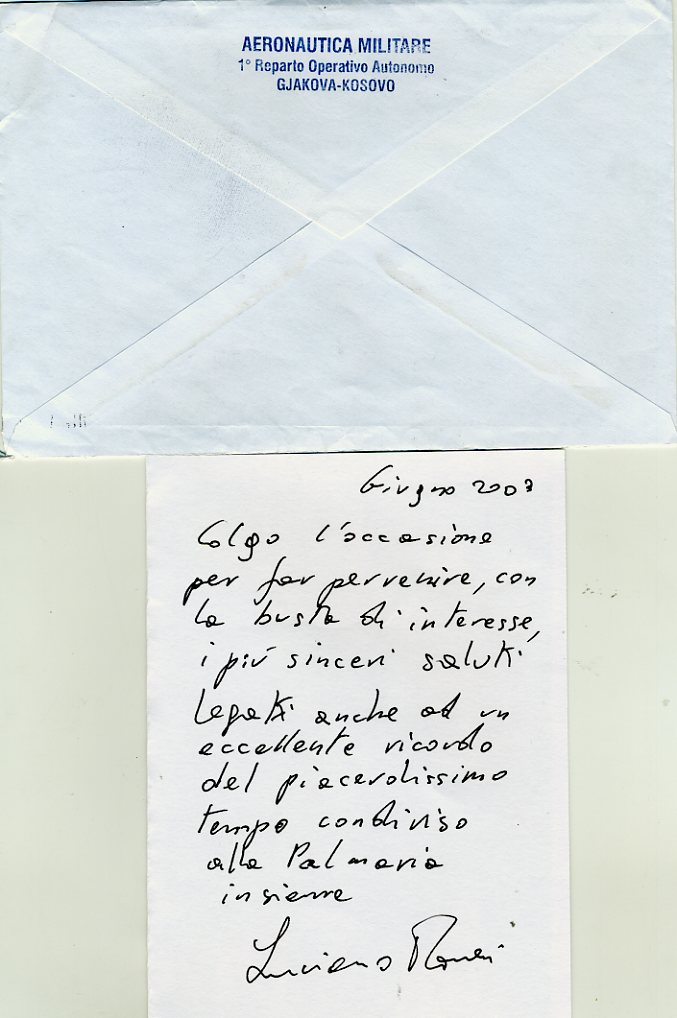 AERONAUTICA MILITARE
1° Reparto Operativo Autonomo
GJAKOVA-KOSOVO
Giugno 2003
Colgo l'occasione
per far pervenire, con
la busta di interesse,
i più sinceri saluti
legati anche ad un
eccellente ricordo
del piacevolissimo
tempo condiviso
alla Palmaria
insieme
Luciano